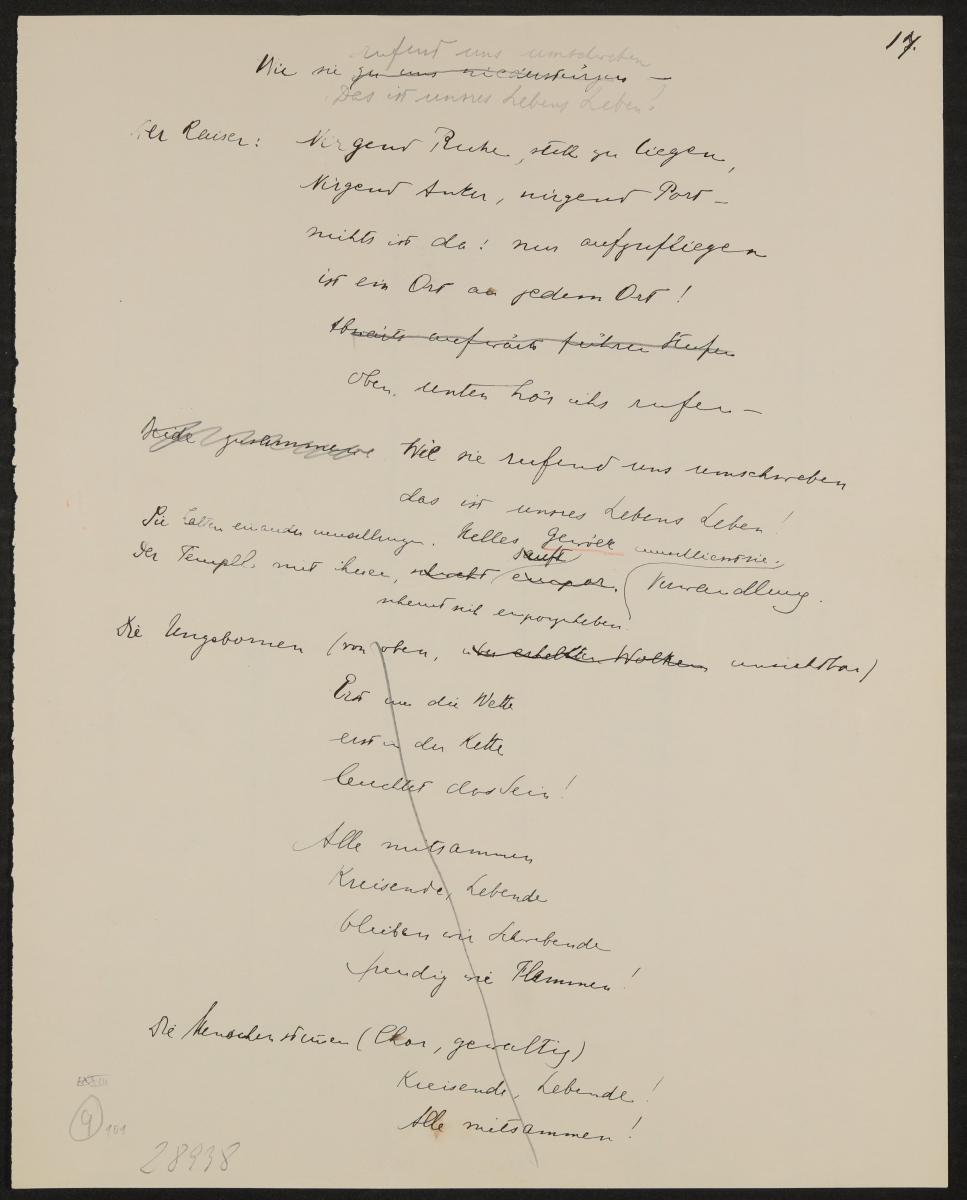 17.
rufend uns umschweben
Wie sie zu uns niederstürzen —
Das ist unsres Lebens Leben!
Der Kaiser: Nirgend Ruhe, still zu liegen,
Nirgend Anker, nirgend Port —
nichts ist da: nur aufzufliegen
ist ein Ort an jedem Ort!
Abwärts aufwärts führen Stufen
Oben, unten hör ichs rufen —
Beide zusammen Wie sie rufend uns umschweben
das ist unsres Lebens Leben!
Sie halten einander umschlungen. Helles Gewölk umschliesst sie.
sanft
Der Tempel, mit ihnen, schwebt empor. Verwandlung.
scheint sich emporzuheben.
Die Ungebornen (von oben, über erhellten Wolken unsichtbar)
Erst um die Wette
erst in der Kette
leuchtet das Sein!
Alle mitsammen
Kreisende, Lebende
bleiben wir Schwebende
freudig wie Flammen!
Die Menschenstimmen (Chor, gewaltig)
Kreisende, Lebende!
Alle mitsammen!
9
101
28938